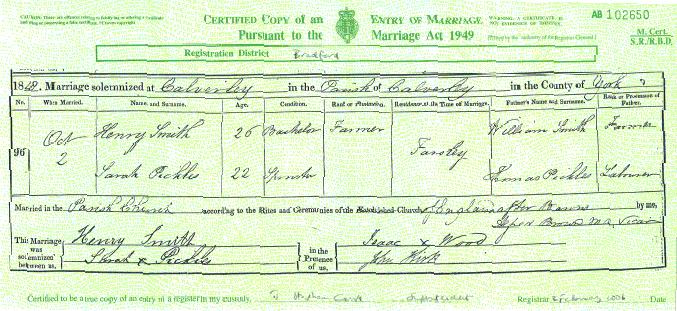 CAUTION: THERE ARE OFFENCES RELATING TO FALSIFYING OR ALTERING A CERTIFICATE
CERTIFIED COPY OF AN ENTRY OF MARRIAGE
Pursuant to the Marriage Act 1949
WARNING: A CERTIFICATE IS NOT EVIDENCE OF IDENTITY.
AB 102650
M. Cert.
S.R./R.B.D.
Registration District Bradford
Marriage solemnized at Calverley in the Parish of Calverley in the County of York
No. When Married. Name and Surname. Age. Condition. Rank or Profession. Residence at the Time of Marriage. Father's Name and Surname. Rank or Profession of Father.
96 Oct 2
Henry Smith 26 Bachelor Farmer Farsley William Smith Farmer
Sarah Pickles 22 Spinster Thomas Pickles Labourer
Married in the Parish Church according to the Rites and Ceremonies of the Established Church of England after Banns by me,
Brown MA, Vicar
This Marriage was solemnized between us, Henry Smith
Sarah x Pickles
in the Presence of us, Isaac x Wood
John Kirk
Certified to be a true copy of an entry in a register in my custody.
Registrar
Date